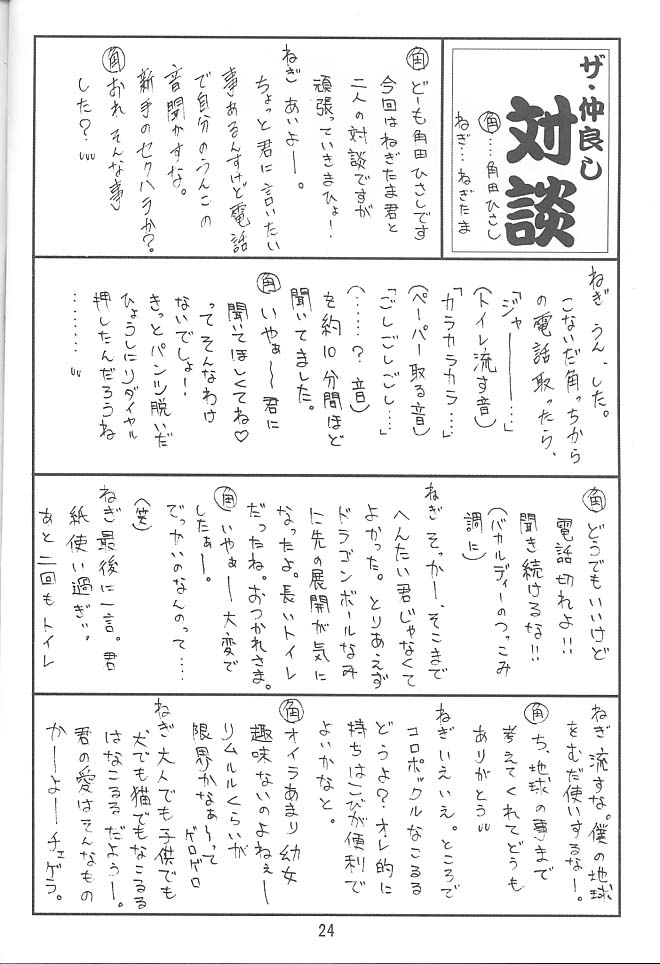 ザ・仲良し
対談
角……角田ひさし
ねぎ…ねぎたま
角 どーも角田ひさしです
今回はねぎたま君と
二人の対談ですが
頑張っていきまひょ!
ねぎ あいよー。
ちょっと君に言いたい
事あるんすけど電話
で自分のうんこの
音聞かすな。
新手のセクハラか?
角 おれそんな事
した?
ねぎ うん、した。
こないだ角っちから
の電話取ったら、
「ジャー――…」
(トイレ流す音)
「カラカラカラ…」
(ペーパー取る音)
「ごしごしごし…」
(……?音)
を約10分間ほど
聞いてました。
角 いやぁ〜君に
聞いてほしくてね♡
ってそんなわけ
ないでしょ!
きっとパンツ脱いだ
ひょうしにリダイヤル
押したんだろうね
………
角 どうでもいいけど
電話切れよ!!
聞き続けるな!!
(バカルディーのつっこみ
調に)
ねぎ そっかー、そこまで
へんたい君じゃなくて
よかった。とりあえず
ドラゴンボールなみ
に先の展開が気に
なったよ。長いトイレ
だったね。おつかれさま。
角 いやぁー大変で
したぁー。
でっかいのなんのって……
(笑)
ねぎ 最後に一言。君
紙使い過ぎ。
あと二回もトイレ
ねぎ 流すな。僕の地球
をむだ使いするなー。
角 ち、地球の事まで
考えてくれてどうも
ありがとう
ねぎ いえいえ。ところで
コロポックルなこるる
どうよ?オレ的に
持ちはこびが便利で
よいかなと。
角 オイラあまり幼女
趣味ないのよねぇー
リムルルくらいが
限界かなぁ〜って
ゲロゲロ
ねぎ 大人でも子供でも
犬でも猫でもなこるる
はなこるるだよぅー。
君の愛はそんなもの
かーよーチェゲラ。
24